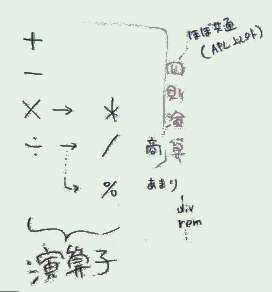 +
−
× → *
÷ → / 商
% あまり
div
rem
四則演算
ほぼ共通
(APL以外)
演算子